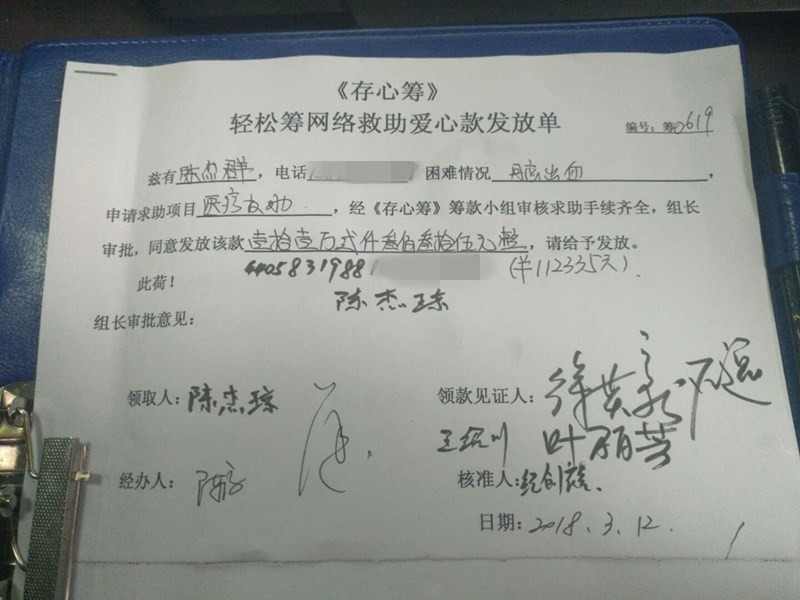 《存心筹》
轻松筹网络救助爱心款发放单
编号：筹0619
兹有陈杰群，电话 困难情况 脑出血 ，
申请求助项目 医疗救助 ，经《存心筹》筹款小组审核求助手续齐全，组长
审批，同意发放该款壹拾壹万贰仟叁佰叁拾伍元整，请给予发放。
此荷！ 4405831988 (¥112335元).
陈杰琼
组长审批意见：
领取人：陈杰琼 领款见证人：徐英永
王绍川 叶丽芳
经办人： 核准人：纪创雄.
日期：2018.3.12.